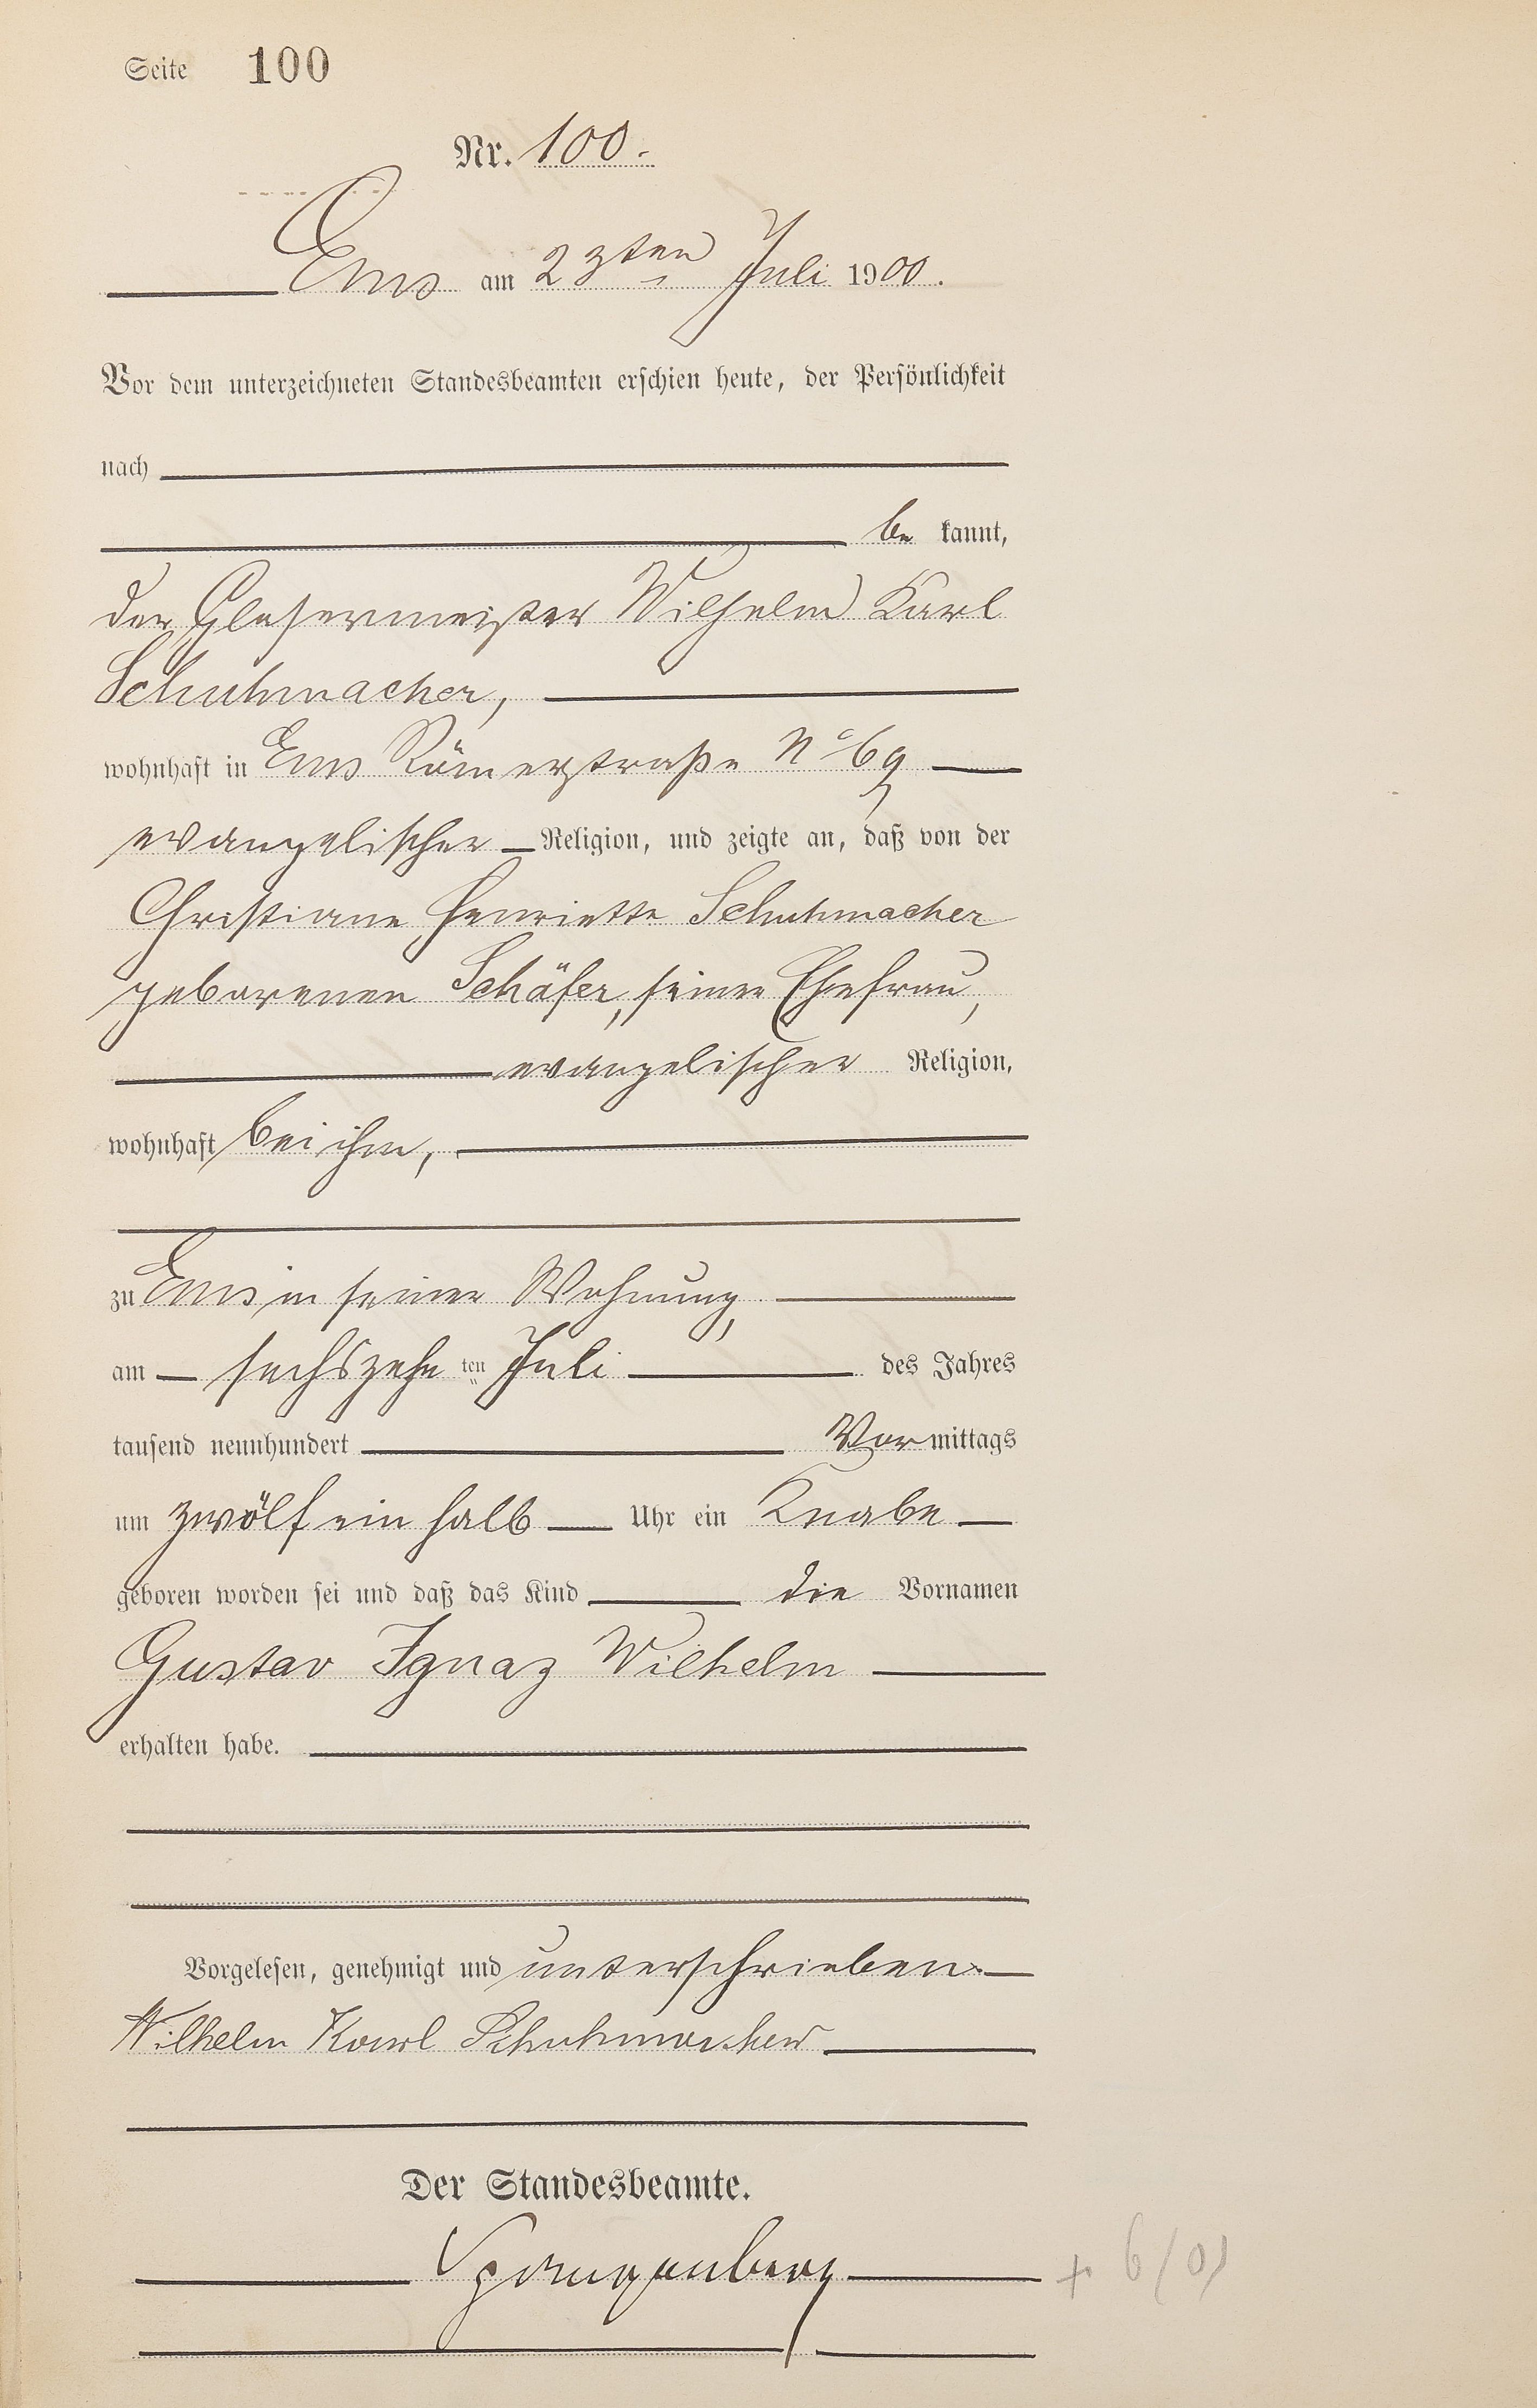 Seite 100
Nr. 100.
Ems am 23ten Juli 1900.
Vor dem unterzeichneten Standesbeamten erschien heute, der Persönlichkeit
nach
be kannt,
der Glasermeister Wilhelm Karl
Schuhmacher,
wohnhaft in Ems Römerstraße No 69
evangelischer Religion, und zeigte an, daß von der
Christiane Henriette Schuhmacher
geborenen Schäfer, seiner Ehefrau,
evangelischer Religion,
wohnhaft bei ihm,
zu Ems in seiner Wohnung,
am sechszehn ten Juli des Jahres
tausend neunhundert Vormittags
um zwölf ein halb Uhr ein Knabe
geboren worden sei und daß das Kind die Vornamen
Gustav Ignaz Wilhelm
erhalten habe.
Vorgelesen, genehmigt und unterschrieben.
Wilhelm Karl Schuhmacher
Der Standesbeamte.
Spangenberg
+ 6/01